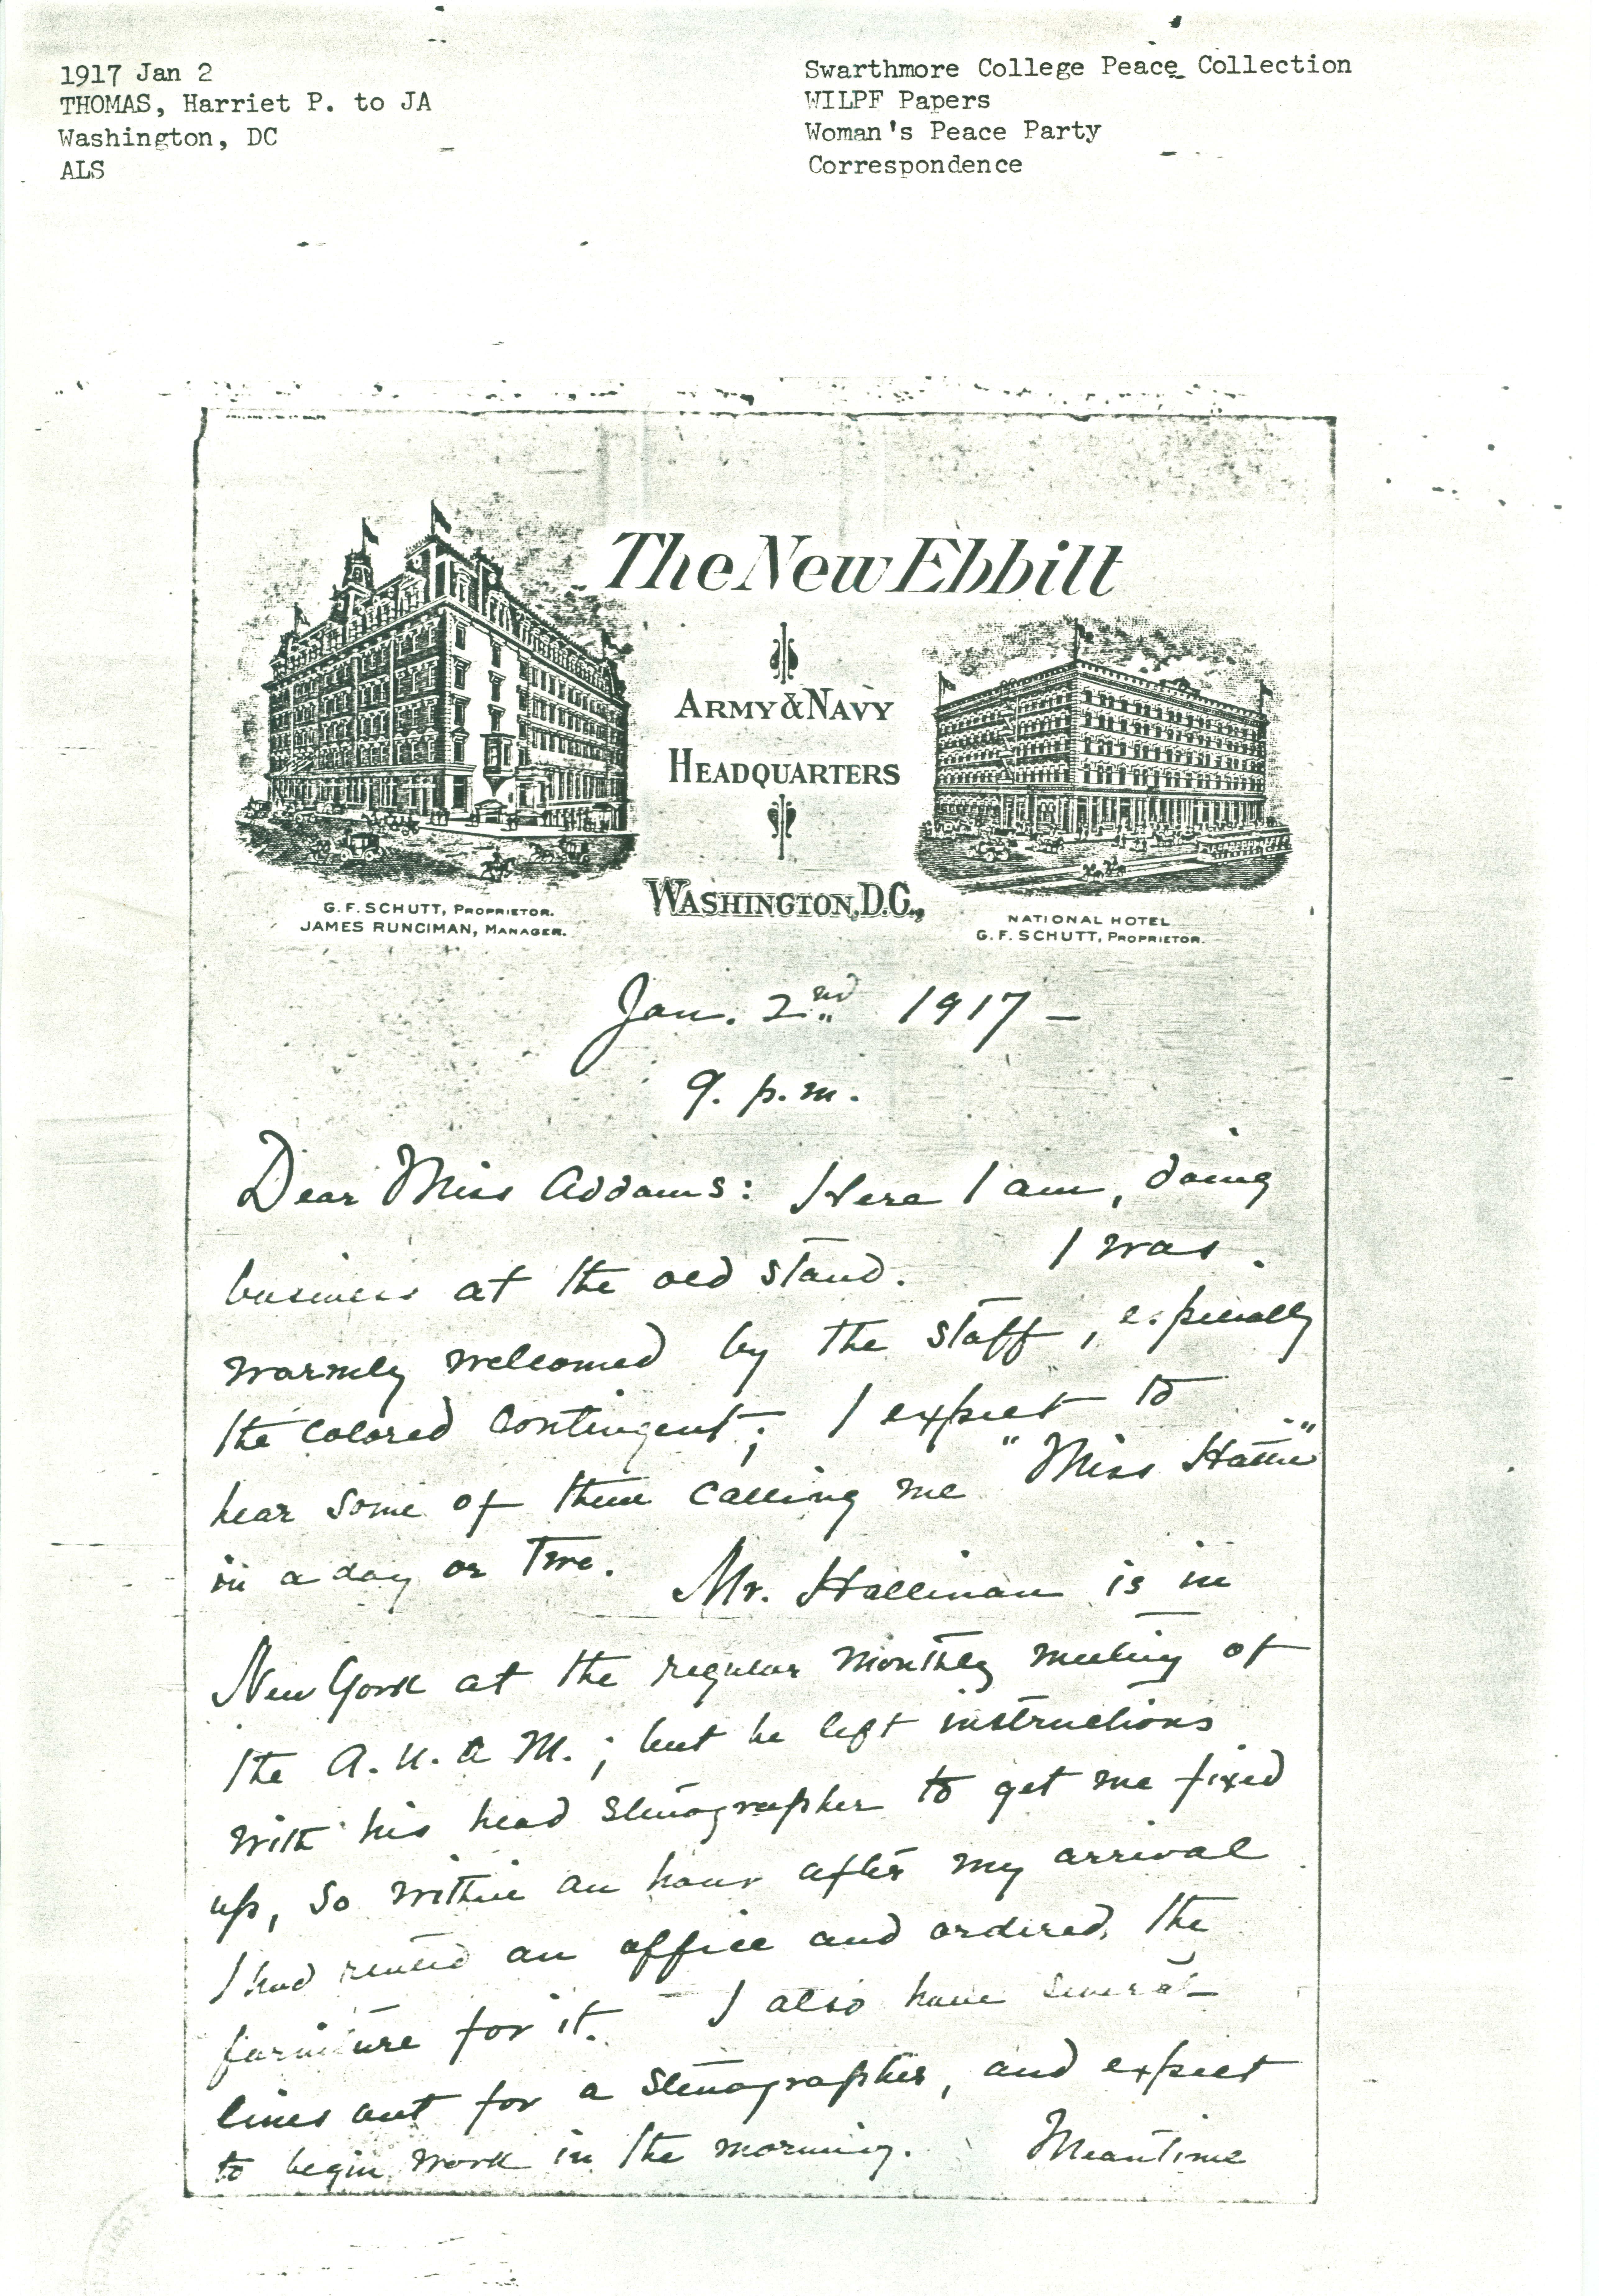 1917 Jan 2
THOMAS, Harriet P. to JA
Washington, DC
ALS
Swarthmore College Peace Collection
WILPF Papers
Woman's Peace Party
Correspondence
The New Ebbitt
ARMY & NAVY
HEADQUARTERS
WASHINGTON, D.C.,
G. F. SCHUTT, PROPRIETOR.
JAMES RUNCIMAN, MANAGER.
NATIONAL HOTEL
G. F. SCHUTT, PROPRIETOR.
Jan. 2nd 1917 –
9. p.m.
Dear Miss Addams: Here I am, doing
business at the old stand. I was
warmly welcomed by the staff, especially
the colored contingent; I expect to
hear some of them calling me "Miss Hattie"
in a day or two. Mr. Hallinan is in
New York at the regular monthly meeting of
the A. U. A M.; but he left instructions
with his head stenographer to get me fixed
up, so within an hour after my arrival
I had rented an office and ordered the
furniture for it. I also have several
lines out for a stenographer, and expect
to begin work in the morning. Meantime